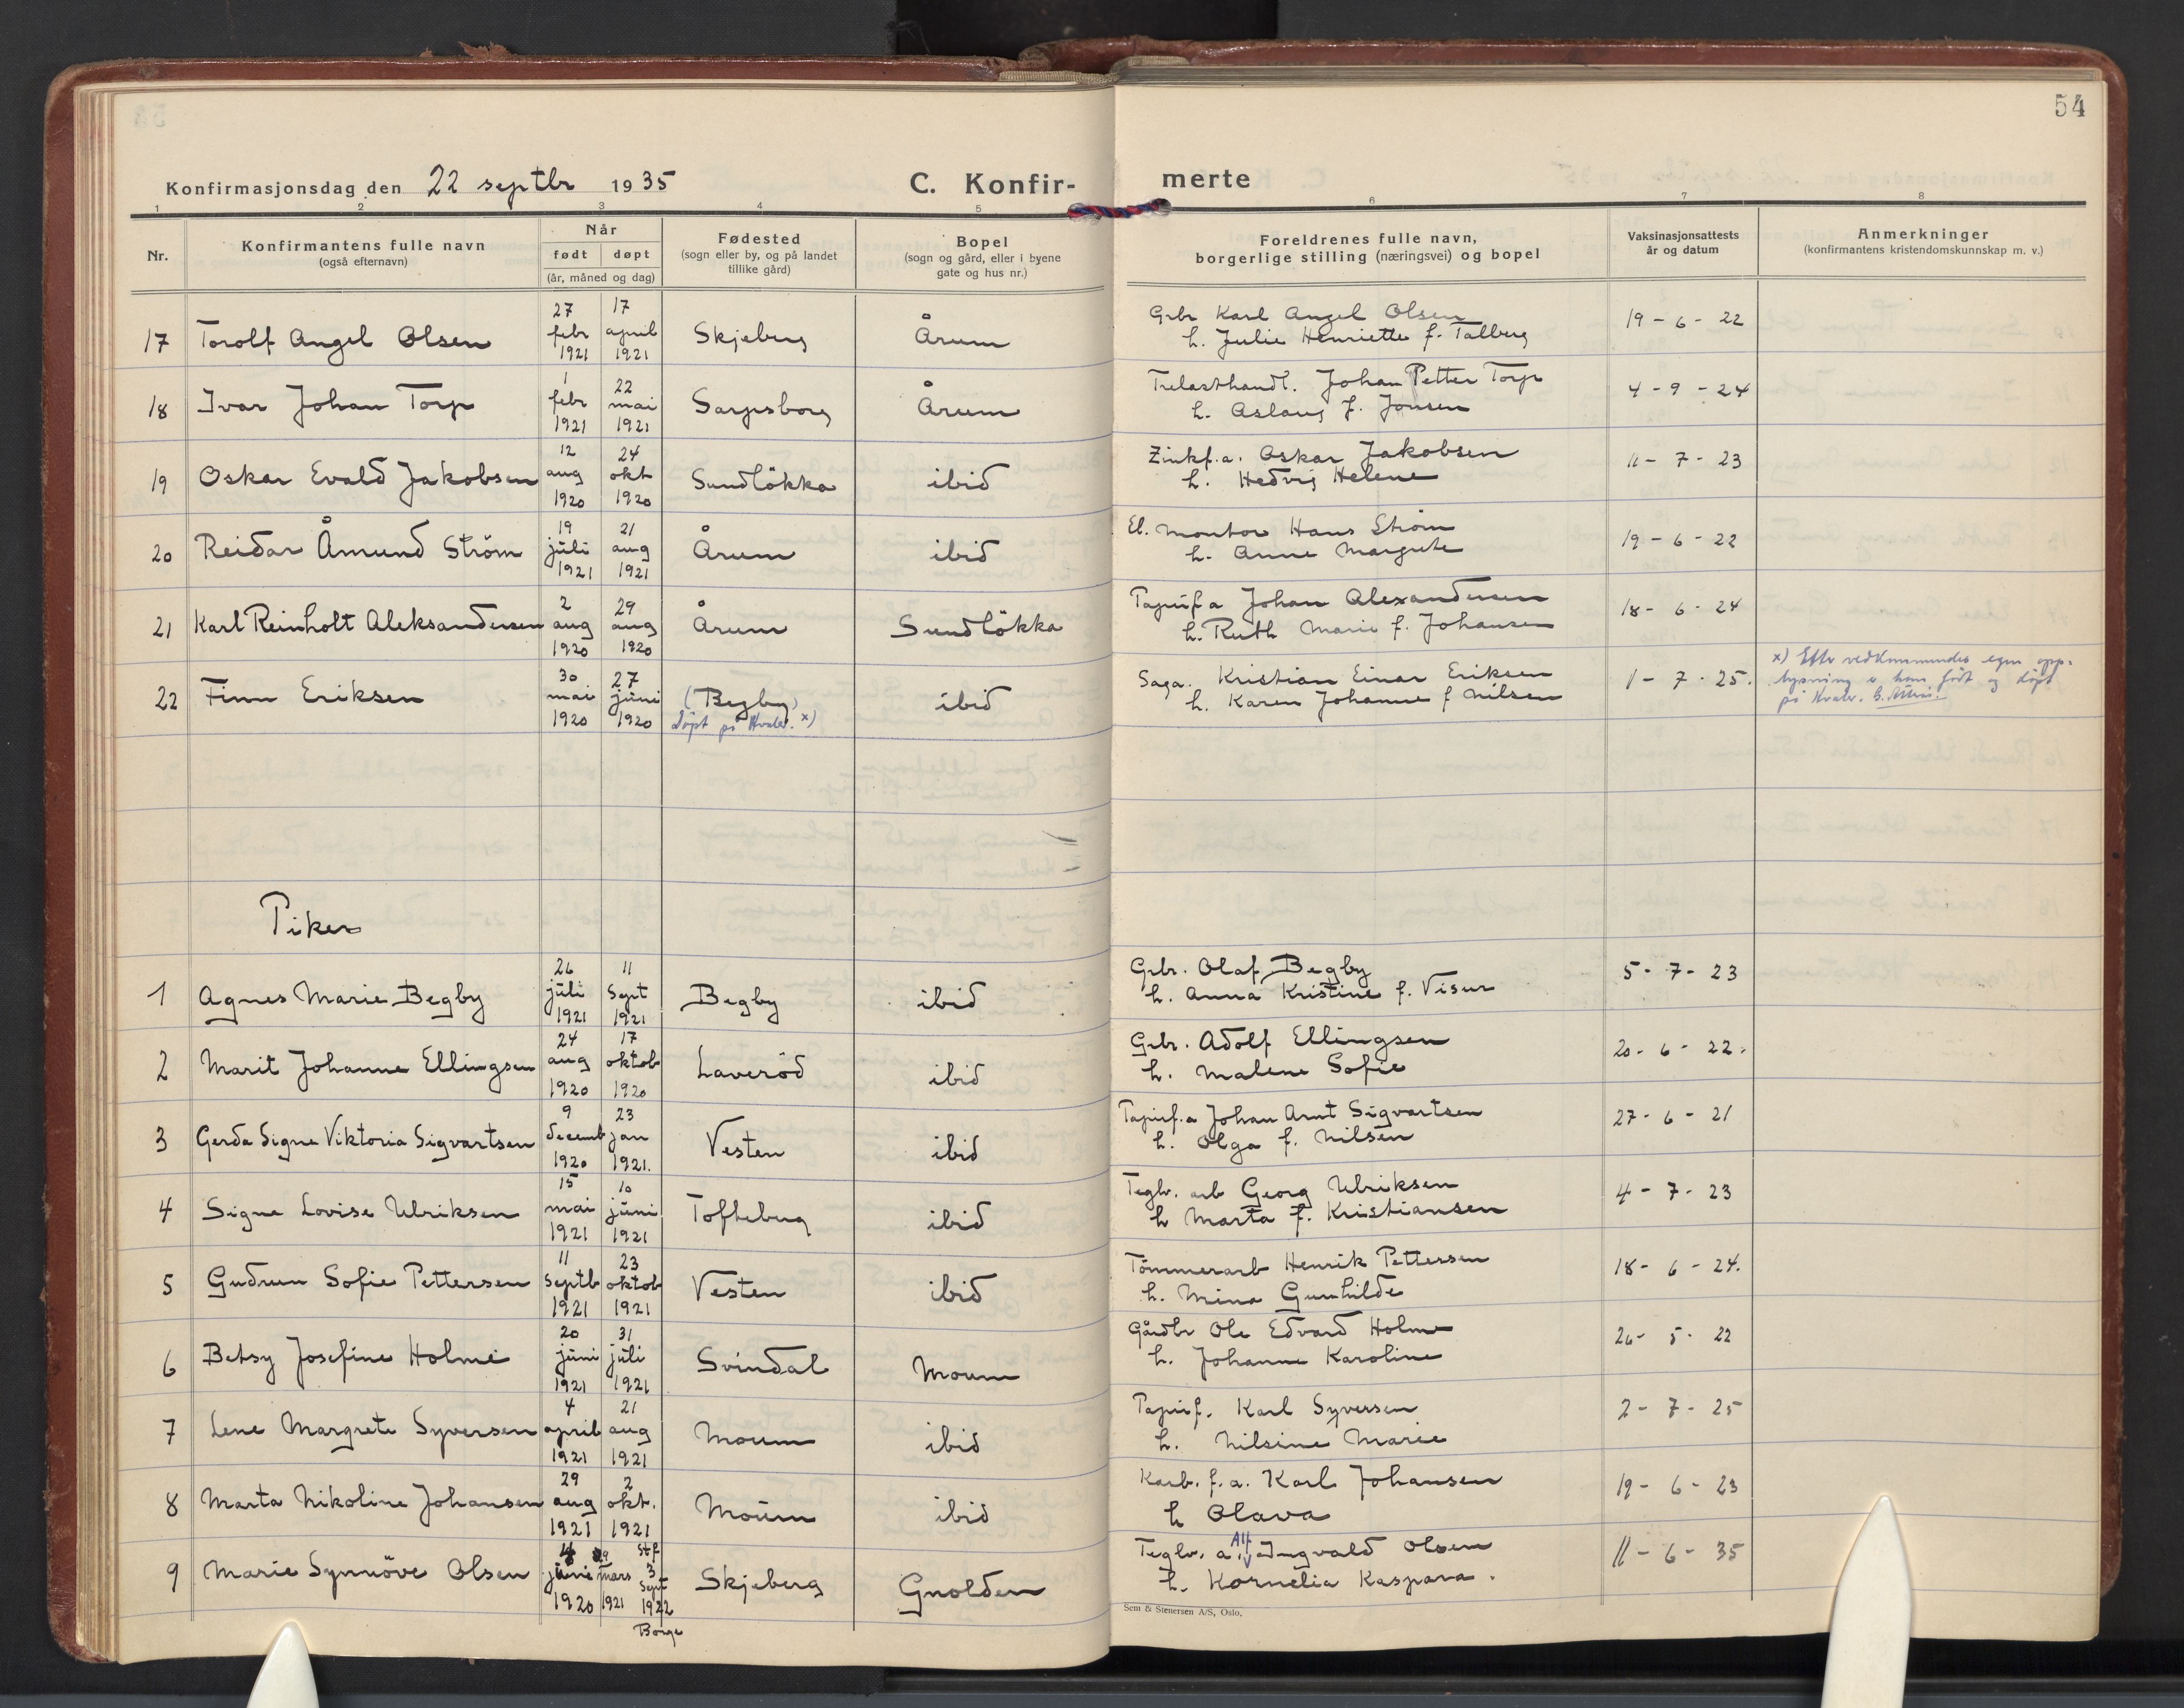 54
Konfirmasjonsdag den 22 septbr 1935
C. Konfir-
merte
1 2 3 4 5 6 7 8
Nr.
Konfirmantens fulle navn
(også efternavn)
Når
født døpt
(år, måned og dag)
Fødested
(sogn eller by, og på landet
tillike gård)
Bopel
(sogn og gård, eller i byene
gate og hus nr.)
Foreldrenes fulle navn,
borgerlige stilling (næringsvei) og bopel
Vaksinasjonsattests
år og datum
Anmerkninger
(konfirmantens kristendomskunnskap m. v.)
27 17 Grbr Karl Angel Olsen
17 Torolf Angel Olsen febr april Skjeberg Årum 19-6-22
1921 1921 h. Julie Henriette f. Talberg
1 22 Trelasthandl. Johan Petter Torp
18 Ivar Johan Torp febr mai Sarpsborg Årum 4-9-24
1921 1921 h. Aslaug f. Jonsen
12 24 Zinkf.a. Oskar Jakobsen
19 Oskar Evald Jakobsen aug okt Sundlökka ibid 11-7-23
1920 1920 h. Hedvig Helene
19 21 El. montör Hans Ström
20 Reidar Åmund Ström juli aug Årum ibid 19-6-22
1921 1921 h. Anne Margrete
2 29 Papirf a Johan Alexandersen
21 Karl Reinholt Aleksandersen aug aug Årum Sundlökka 18-6-24
1920 1920 h. Ruth Marie f. Johansen
30 27 Saga. Kristian Einar Eriksen
22 Finn Eriksen mai juni (Begby) ibid 1-7-25.
1920 1920 Döpt på Hvaler. x) h. Karen Johanne f Nilsen
x) Efter vedkommendes egen opp-
lysning er han født og döpt
på Hvaler.
Piker
26 11 Grbr. Olaf Begby
1 Agnes Marie Begby juli Sept Begby ibid 5-7-23
1921 1921 h. Anna Kristine f. Visur
24 17 Grbr. Adolf Ellingsen
2 Marit Johanne Ellingsen aug oktob Laveröd ibid 20-6-22.
1920 1920 h. Malene Sofie
9 23 Papirf.a Johan Arnt Sigvartsen
3 Gerda Signe Viktoria Sigvartsen decemb jan Vesten ibid 27-6-21
1920 1921. h. Olga f. Nilsen
15 10 Teglv. arb Georg Ulriksen
4 Signe Lovise Ulriksen mai juni Tofteberg ibid 4-7-23
1921 1921 h Marta f. Kristiansen
11 23 Tömmerarb Henrik Pettersen
5 Gudrun Sofie Pettersen Septb oktob Vesten ibid 18-6-24.
1921 1921 h. Mina Gunhilde
20 31 Gårdbr Ole Edvard Holme
6 Betsy Josefine Holme juni juli Svindal Moum 26-5-22
1921 1921 h. Johanne Karoline
4 21 Papirf. Karl Syversen
7 Lene Margrete Syversen april aug Moum ibid 2-7-25
1921 1921 h. Nilsine Marie
29 2 Karb. f.a. Karl Johansen
8 Marta Nikoline Johansen aug okt. Moum ibid 19-6-23
1921 1921 h Olava
4 29 Stf Teglv. a. Alf Ingvald Olsen
9 Marie Synnöve Olsen juni mars 3 Sept Skjeberg Gnolden 11-6-35
1920 1921 1922 h. Kornelia Kaspara.
Borge
Sem & Stenersen A/S, Oslo.